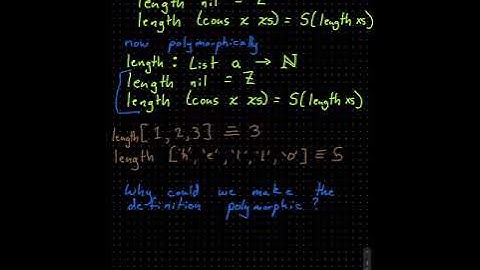 length nil = Z
length (cons x xs) = S(length xs)
now polymorphically
length : List a → ℕ
length nil = Z
length (cons x xs) = S(length xs)
length [1,2,3] ≡ 3
length ['h','e','l','l','o'] ≡ 5
Why could we make the
definition polymorphic ?